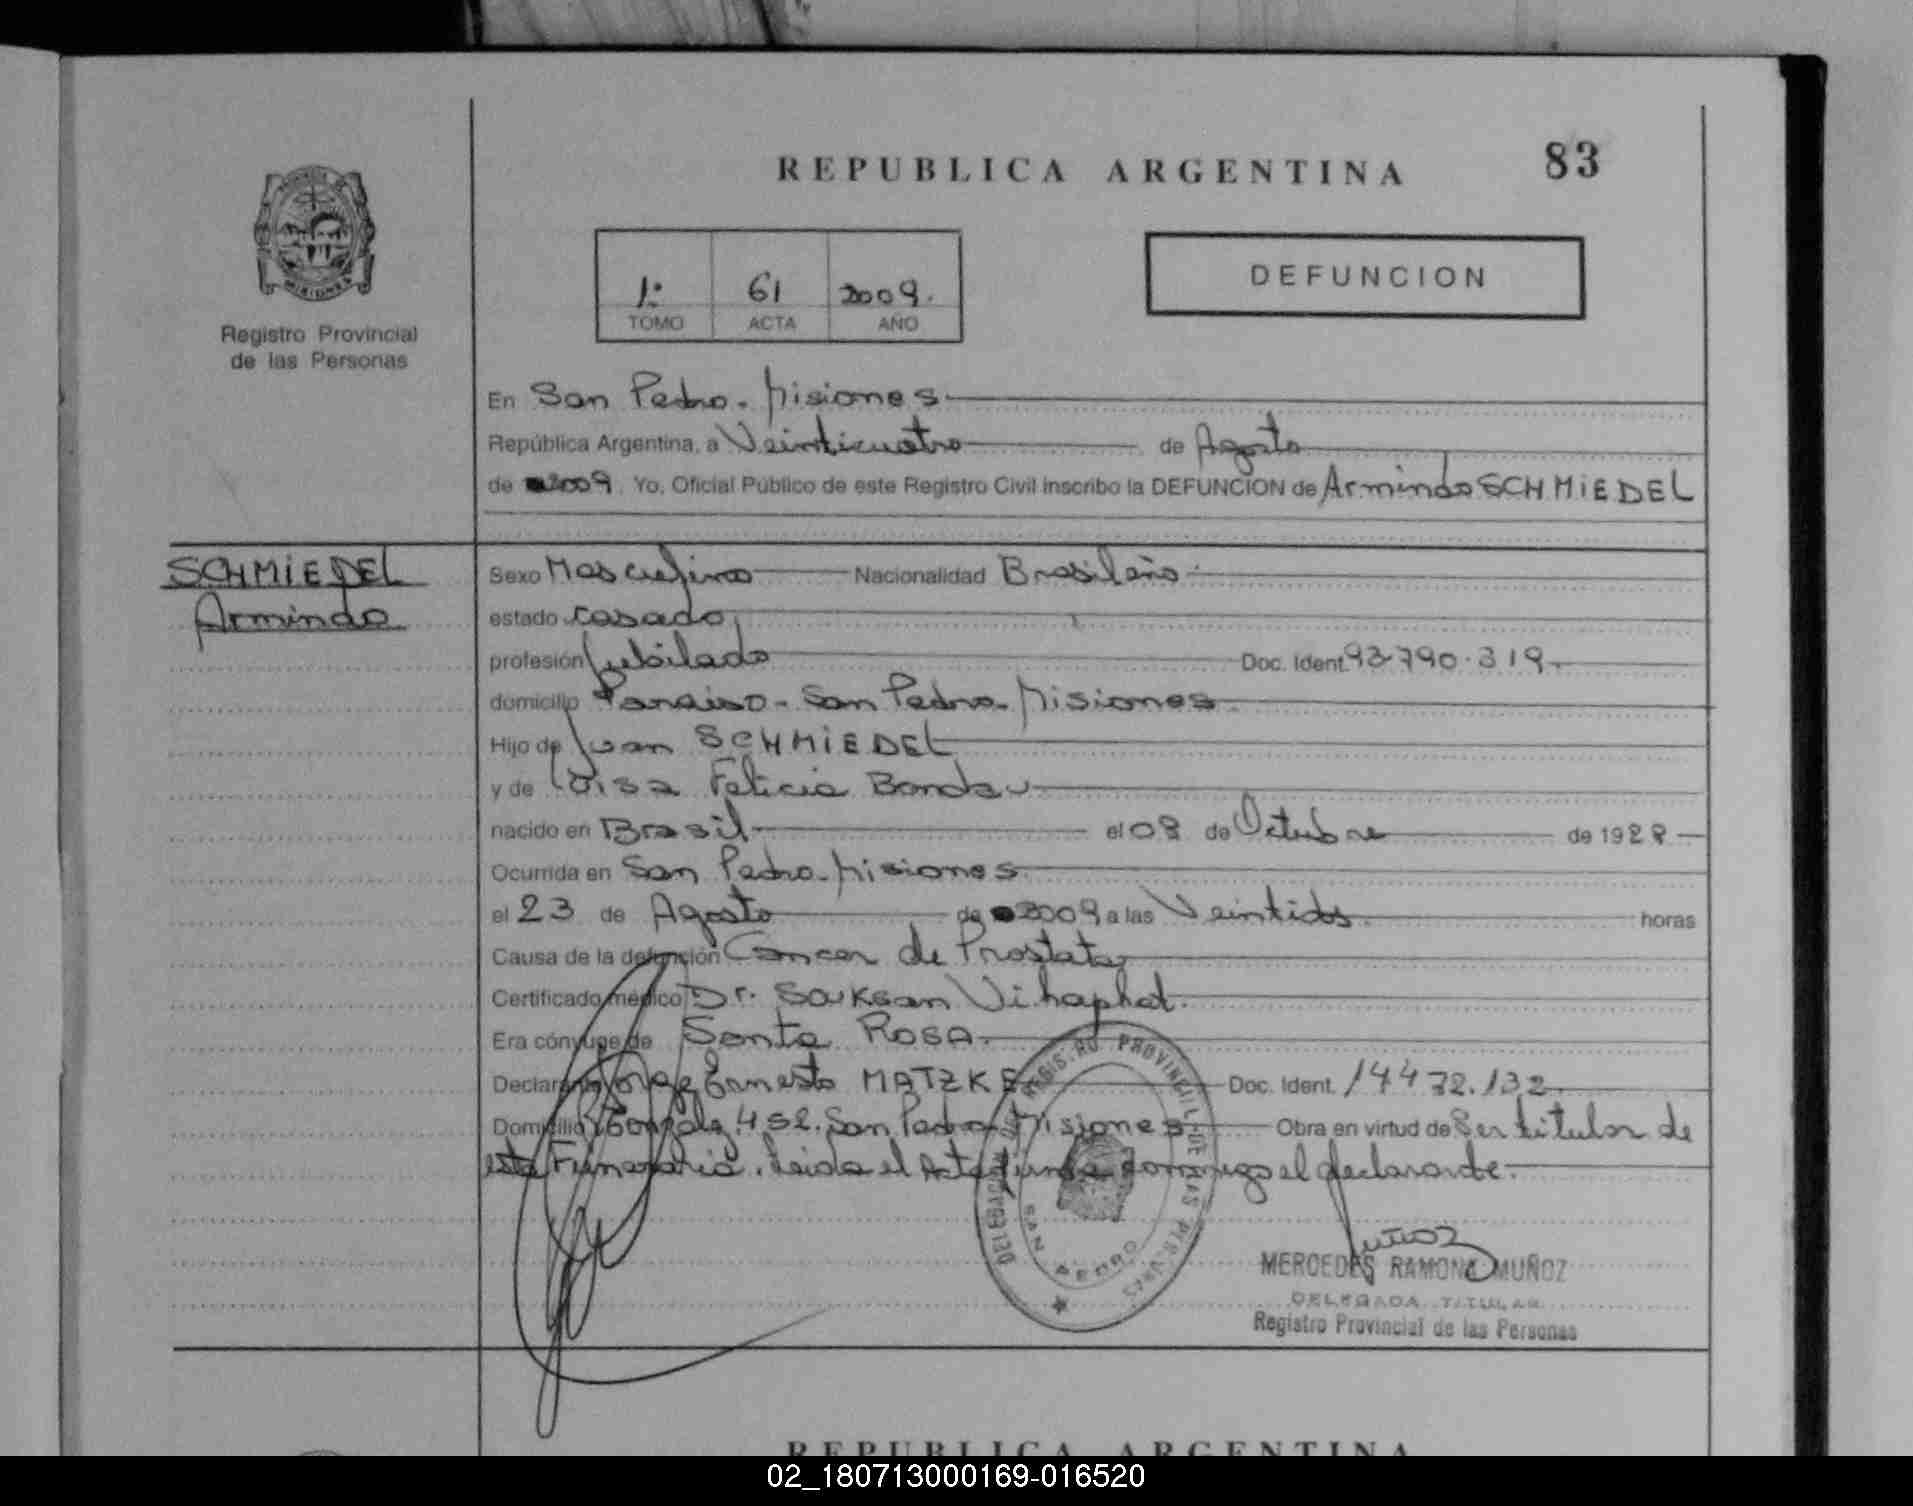 REPUBLICA ARGENTINA 83
PROVINCIA DE
MISIONES
Registro Provincial
de las Personas
1º 61 2009.
TOMO ACTA AÑO
DEFUNCION
En San Pedro. Misiones
República Argentina, a Veinticuatro de Agosto
de 2009. Yo, Oficial Público de este Registro Civil inscribo la DEFUNCION de Armindo SCHMiEDEL
SCHMiEDEL
Armindo
Sexo Masculino Nacionalidad Brasileño
estado casado
profesión Jubilado Doc. Ident. 93.790.319
domicilio Paraiso - San Pedro. Misiones
Hijo de Juan SCHMiEDEL
y de Felicia
nacido en Brasil el 08 de Octubre de 1928
Ocurrida en San Pedro. Misiones
el 23 de Agosto de 2009 a las Veintidos horas
Causa de la defunción Cancer de Prostata
Certificado médico Dr. Souksan Vihaphat.
Era cónyuge de Santa ROSA.
Declarante Jorge Ernesto MATZKE Doc. Ident. 14472.132
Domicilio San Pedro Misiones Obra en virtud de Ser titular de
esta Funeraria. Leida el Acta firma conmigo el declarante.
REGISTRO PROVINCIAL DE LAS PERSONAS
SAN PEDRO
Muñoz
MERCEDES RAMONA MUÑOZ
DELEGADA TITULAR
Registro Provincial de las Personas
REPUBLICA ARGENTINA
02_180713000169-016520